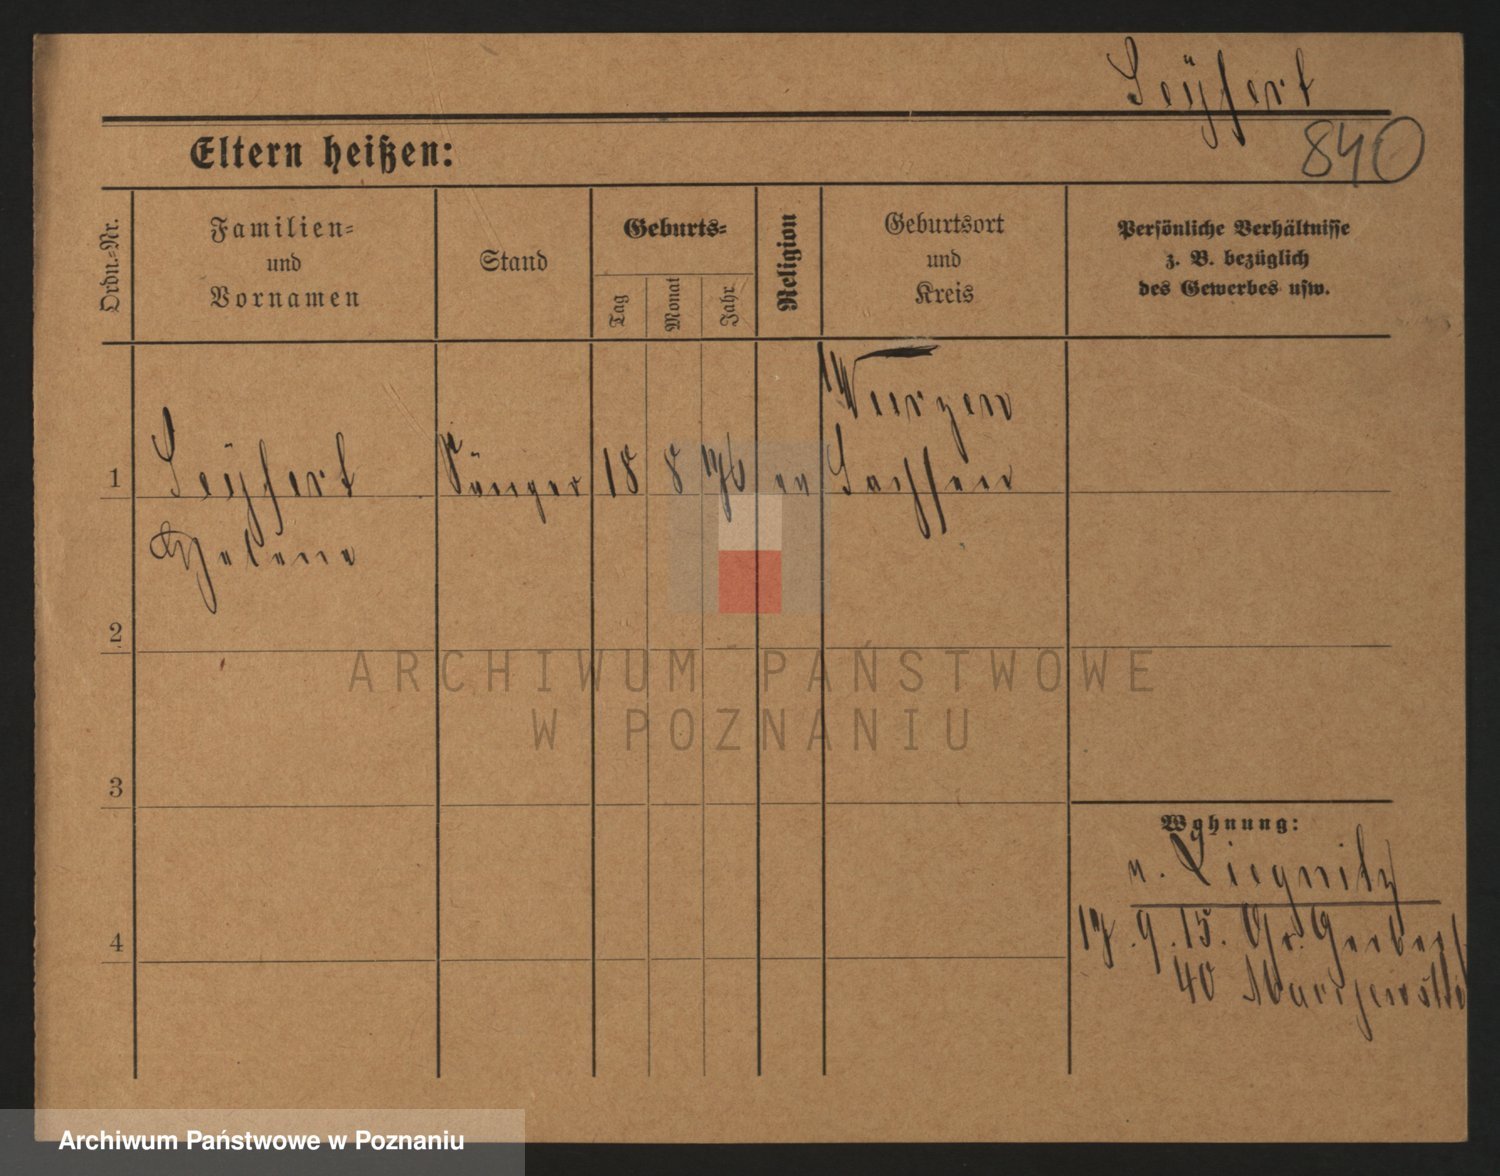 Seÿfert
840
Eltern heißen:
Ordn.-Nr.
Familien-
und
Vornamen
Stand
Geburts-
Tag
Monat
Jahr
Religion
Geburtsort
und
Kreis
Persönliche Verhältnisse
z. B. bezüglich
des Gewerbes usw.
Wurzen
1 Seÿfert Sänger 18 8 76 ev Sachsen
Helene
2
ARCHIWUM PAŃSTWOWE
W POZNANIU
3
Wohnung:
n. Liegnitz
17.9.15. Gr. Gerberst
40
4
Archiwum Państwowe w Poznaniu